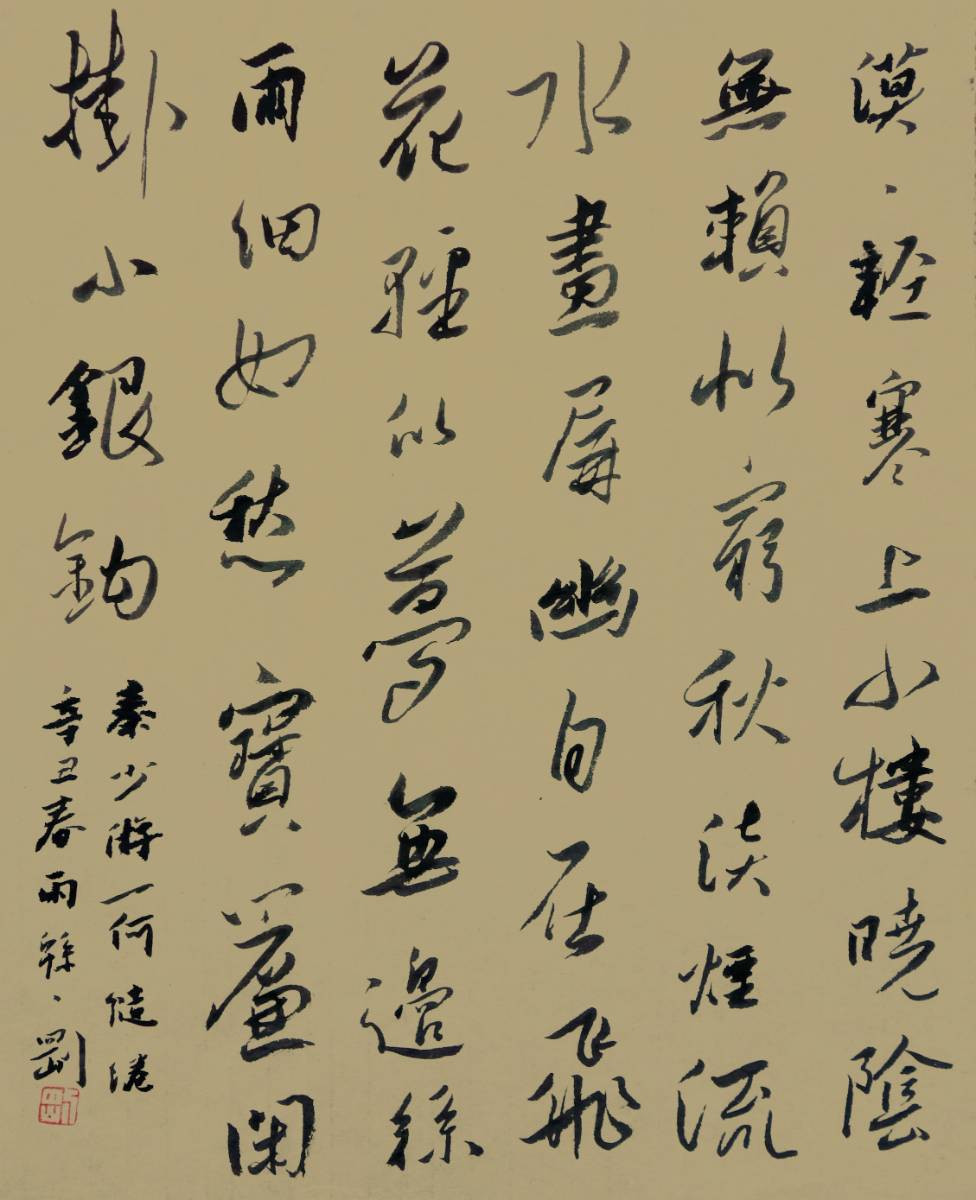 漠、輕寒上小樓曉陰
無賴似窮秋淡煙流
水畫屏幽自在飛
花輕似夢無邊絲
雨細如愁寶簾閑
掛小銀鉤
秦少游一何
辛丑春雨緜、剛